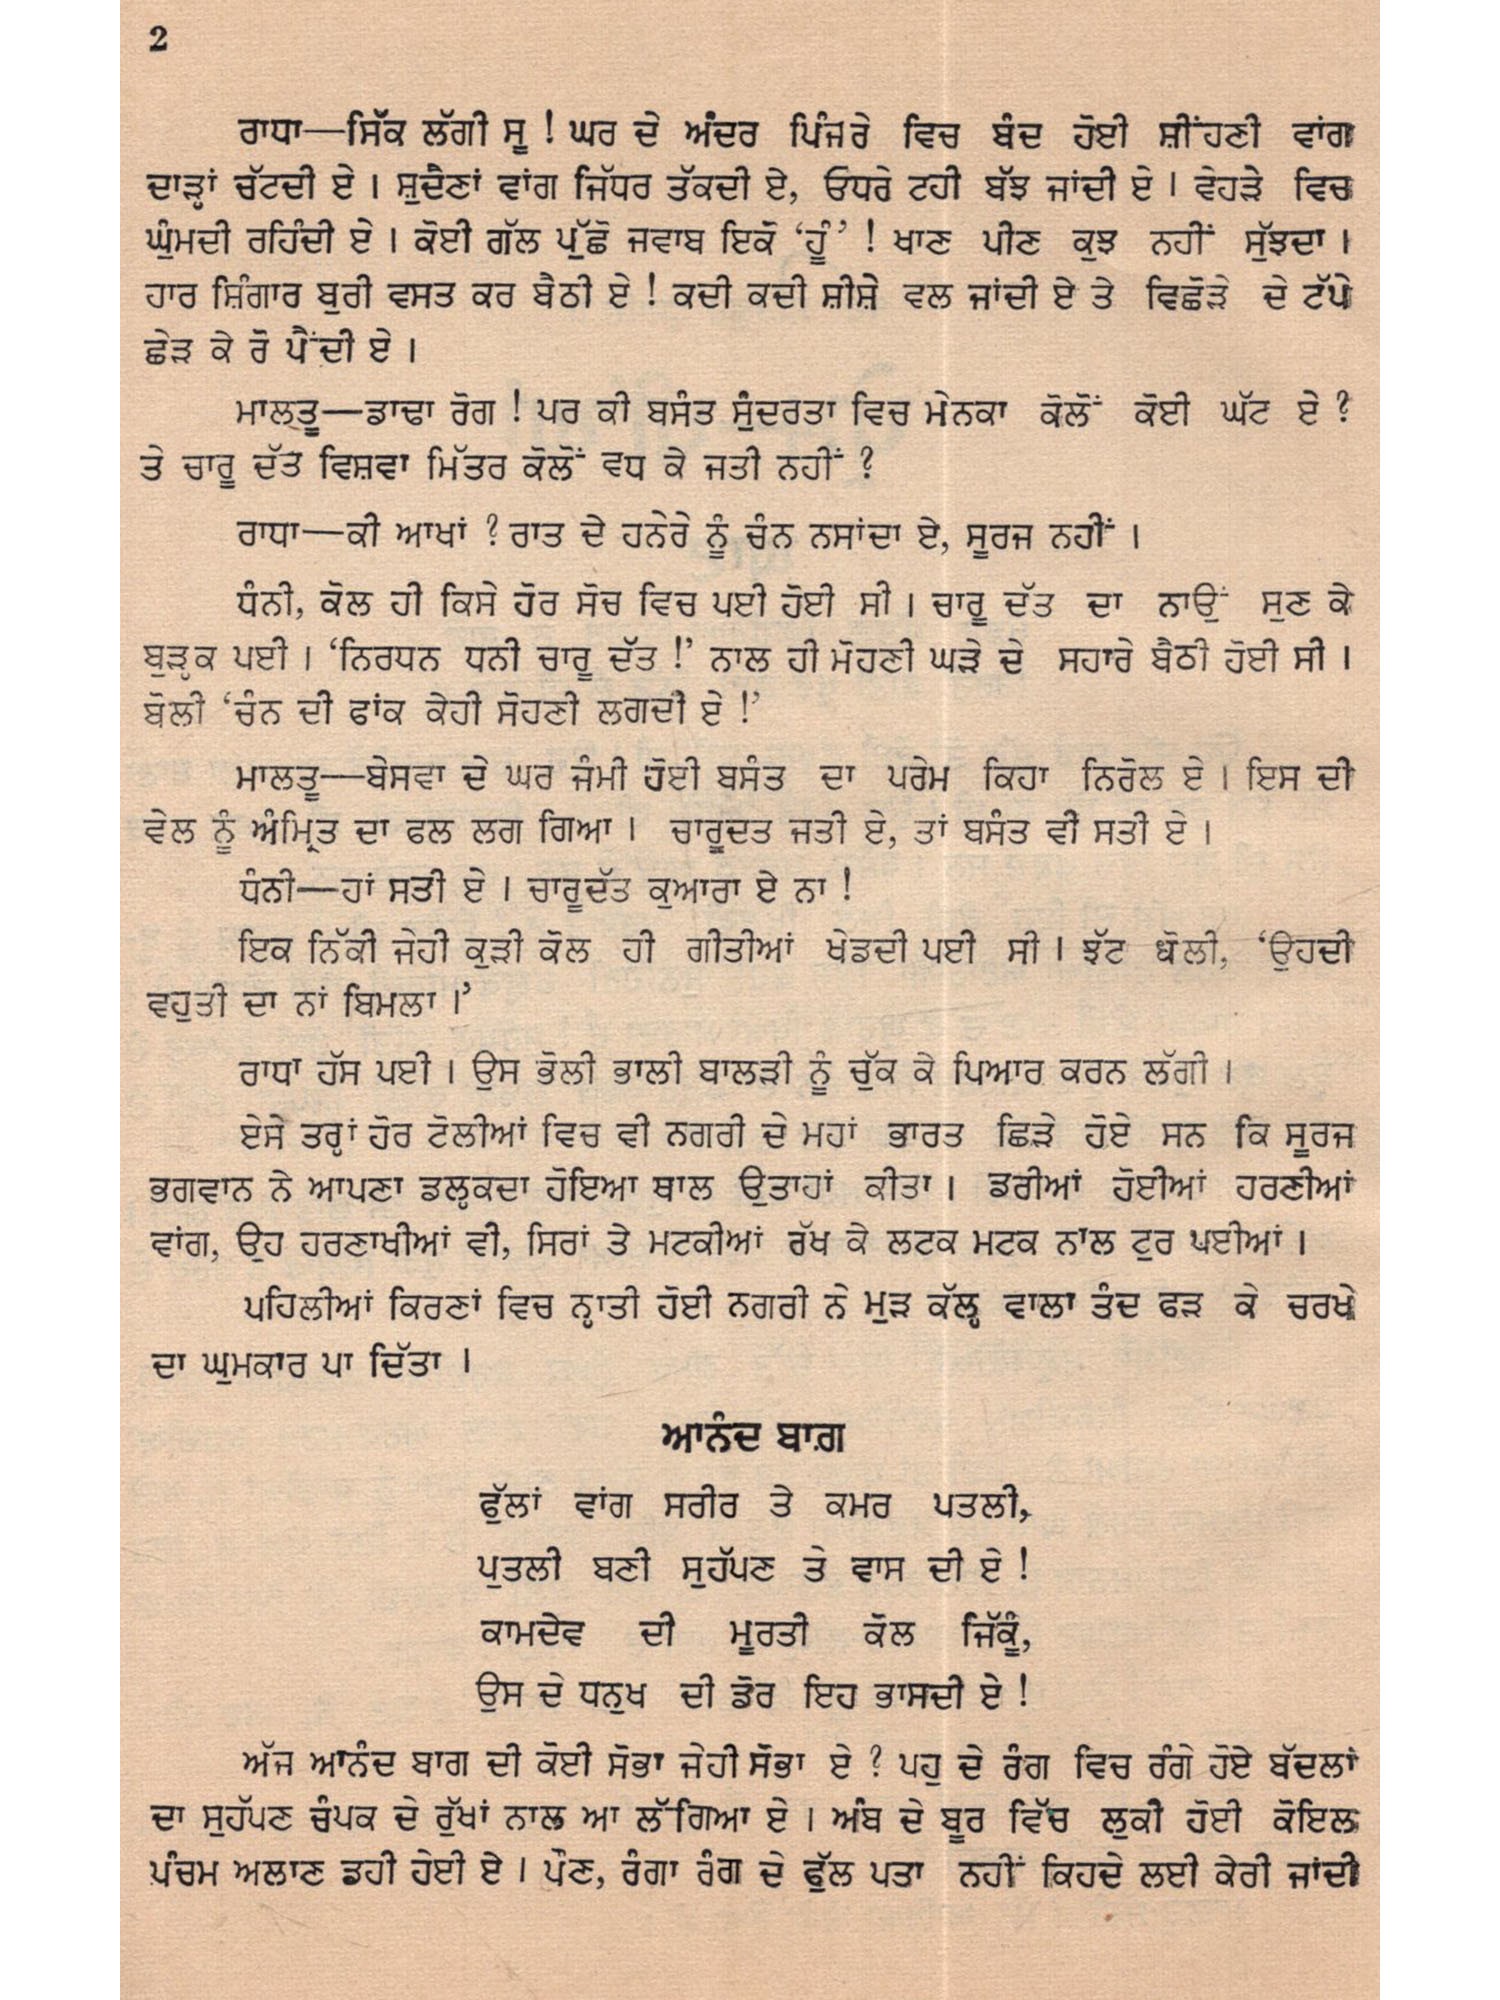 2
ਰਾਧਾ—ਸਿੱਕ ਲੱਗੀ ਸੂ ! ਘਰ ਦੇ ਅੰਦਰ ਪਿੰਜਰੇ ਵਿਚ ਬੰਦ ਹੋਈ ਸ਼ੀਂਹਣੀ ਵਾਂਗ
ਦਾੜ੍ਹਾਂ ਚੱਟਦੀ ਏ । ਸ਼ੁਦੈਣਾਂ ਵਾਂਗ ਜਿੱਧਰ ਤੱਕਦੀ ਏ, ਓਧਰੇ ਟਹੀ ਬੱਝ ਜਾਂਦੀ ਏ । ਵੇਹੜੇ ਵਿਚ
ਘੁੰਮਦੀ ਰਹਿੰਦੀ ਏ । ਕੋਈ ਗੱਲ ਪੁੱਛੋ ਜਵਾਬ ਇਕੋ ‘ਹੂੰ’ ! ਖਾਣ ਪੀਣ ਕੁਝ ਨਹੀਂ ਸੁੱਝਦਾ ।
ਹਾਰ ਸ਼ਿੰਗਾਰ ਬੁਰੀ ਵਸਤ ਕਰ ਬੈਠੀ ਏ ! ਕਦੀ ਕਦੀ ਸ਼ੀਸ਼ੇ ਵਲ ਜਾਂਦੀ ਏ ਤੇ ਵਿਛੋੜੇ ਦੇ ਟੱਪੇ
ਛੇੜ ਕੇ ਰੋ ਪੈਂਦੀ ਏ ।
ਮਾਲਤੂ—ਡਾਢਾ ਰੋਗ ! ਪਰ ਕੀ ਬਸੰਤ ਸੁੰਦਰਤਾ ਵਿਚ ਮੇਨਕਾ ਕੋਲੋਂ ਕੋਈ ਘੱਟ ਏ ?
ਤੇ ਚਾਰੂ ਦੱਤ ਵਿਸ਼ਵਾ ਮਿੱਤਰ ਕੋਲੋਂ ਵਧ ਕੇ ਜਤੀ ਨਹੀਂ ?
ਰਾਧਾ—ਕੀ ਆਖਾਂ ? ਰਾਤ ਦੇ ਹਨੇਰੇ ਨੂੰ ਚੰਨ ਨਸਾਂਦਾ ਏ, ਸੂਰਜ ਨਹੀਂ ।
ਧੰਨੀ, ਕੋਲ ਹੀ ਕਿਸੇ ਹੋਰ ਸੋਚ ਵਿਚ ਪਈ ਹੋਈ ਸੀ । ਚਾਰੂ ਦੱਤ ਦਾ ਨਾਉਂ ਸੁਣ ਕੇ
ਬੁੜ੍ਹਕ ਪਈ । ‘ਨਿਰਧਨ ਧਨੀ ਚਾਰੂ ਦੱਤ !’ ਨਾਲ ਹੀ ਮੋਹਣੀ ਘੜੇ ਦੇ ਸਹਾਰੇ ਬੈਠੀ ਹੋਈ ਸੀ ।
ਬੋਲੀ ‘ਚੰਨ ਦੀ ਫਾਂਕ ਕੇਹੀ ਸੋਹਣੀ ਲਗਦੀ ਏ !’
ਮਾਲਤੂ—ਬੇਸਵਾ ਦੇ ਘਰ ਜੰਮੀ ਹੋਈ ਬਸੰਤ ਦਾ ਪਰੇਮ ਕਿਹਾ ਨਿਰੋਲ ਏ । ਇਸ ਦੀ
ਵੇਲ ਨੂੰ ਅੰਮ੍ਰਿਤ ਦਾ ਫਲ ਲਗ ਗਿਆ । ਚਾਰੂਦਤ ਜਤੀ ਏ, ਤਾਂ ਬਸੰਤ ਵੀ ਸਤੀ ਏ ।
ਧੰਨੀ—ਹਾਂ ਸਤੀ ਏ । ਚਾਰੂਦੱਤ ਕੁਆਰਾ ਏ ਨਾ !
ਇਕ ਨਿੱਕੀ ਜੇਹੀ ਕੁੜੀ ਕੋਲ ਹੀ ਗੀਤੀਆਂ ਖੇਡਦੀ ਪਈ ਸੀ । ਝੱਟ ਬੋਲੀ, ‘ਉਹਦੀ
ਵਹੁਤੀ ਦਾ ਨਾਂ ਬਿਮਲਾ ।’
ਰਾਧਾਂ ਹੱਸ ਪਈ । ਉਸ ਭੋਲੀ ਭਾਲੀ ਬਾਲੜੀ ਨੂੰ ਚੁੱਕ ਕੇ ਪਿਆਰ ਕਰਨ ਲੱਗੀ ।
ਏਸੇ ਤਰ੍ਹਾਂ ਹੋਰ ਟੋਲੀਆਂ ਵਿਚ ਵੀ ਨਗਰੀ ਦੇ ਮਹਾਂ ਭਾਰਤ ਛਿੜੇ ਹੋਏ ਸਨ ਕਿ ਸੂਰਜ
ਭਗਵਾਨ ਨੇ ਆਪਣਾ ਡਲ੍ਹਕਦਾ ਹੋਇਆ ਥਾਲ ਉਤਾਹਾਂ ਕੀਤਾ । ਡਰੀਆਂ ਹੋਈਆਂ ਹਰਣੀਆਂ
ਵਾਂਗ, ਉਹ ਹਰਣਾਖੀਆਂ ਵੀ, ਸਿਰਾਂ ਤੇ ਮਟਕੀਆਂ ਰੱਖ ਕੇ ਲਟਕ ਮਟਕ ਨਾਲ ਟੁਰ ਪਈਆਂ ।
ਪਹਿਲੀਆਂ ਕਿਰਣਾਂ ਵਿਚ ਨ੍ਹਾਤੀ ਹੋਈ ਨਗਰੀ ਨੇ ਮੁੜ ਕੱਲ੍ਹ ਵਾਲਾ ਤੰਦ ਫੜ ਕੇ ਚਰਖੇ
ਦਾ ਘੁਮਕਾਰ ਪਾ ਦਿੱਤਾ ।
ਆਨੰਦ ਬਾਗ਼
ਫੁੱਲਾਂ ਵਾਂਗ ਸਰੀਰ ਤੇ ਕਮਰ ਪਤਲੀ,
ਪੁਤਲੀ ਬਣੀ ਸੁਹੱਪਣ ਤੇ ਵਾਸ ਦੀ ਏ !
ਕਾਮਦੇਵ ਦੀ ਮੂਰਤੀ ਕੋਲ ਜਿੱਕੂੰ,
ਉਸ ਦੇ ਧਨੁਖ ਦੀ ਡੋਰ ਇਹ ਭਾਸਦੀ ਏ !
ਅੱਜ ਆਨੰਦ ਬਾਗ ਦੀ ਕੋਈ ਸੋਭਾ ਜੇਹੀ ਸੋਭਾ ਏ ? ਪਹੁ ਦੇ ਰੰਗ ਵਿਚ ਰੰਗੇ ਹੋਏ ਬੱਦਲਾਂ
ਦਾ ਸੁਹੱਪਣ ਚੰਪਕ ਦੇ ਰੁੱਖਾਂ ਨਾਲ ਆ ਲੱਗਿਆ ਏ । ਅੰਬ ਦੇ ਬੂਰ ਵਿੱਚ ਲੁਕੀ ਹੋਈ ਕੋਇਲ
ਪੰਚਮ ਅਲਾਣ ਡਹੀ ਹੋਈ ਏ । ਪੌਣ, ਰੰਗਾ ਰੰਗ ਦੇ ਫੁੱਲ ਪਤਾ ਨਹੀਂ ਕਿਹਦੇ ਲਈ ਕੇਰੀ ਜਾਂਦੀ